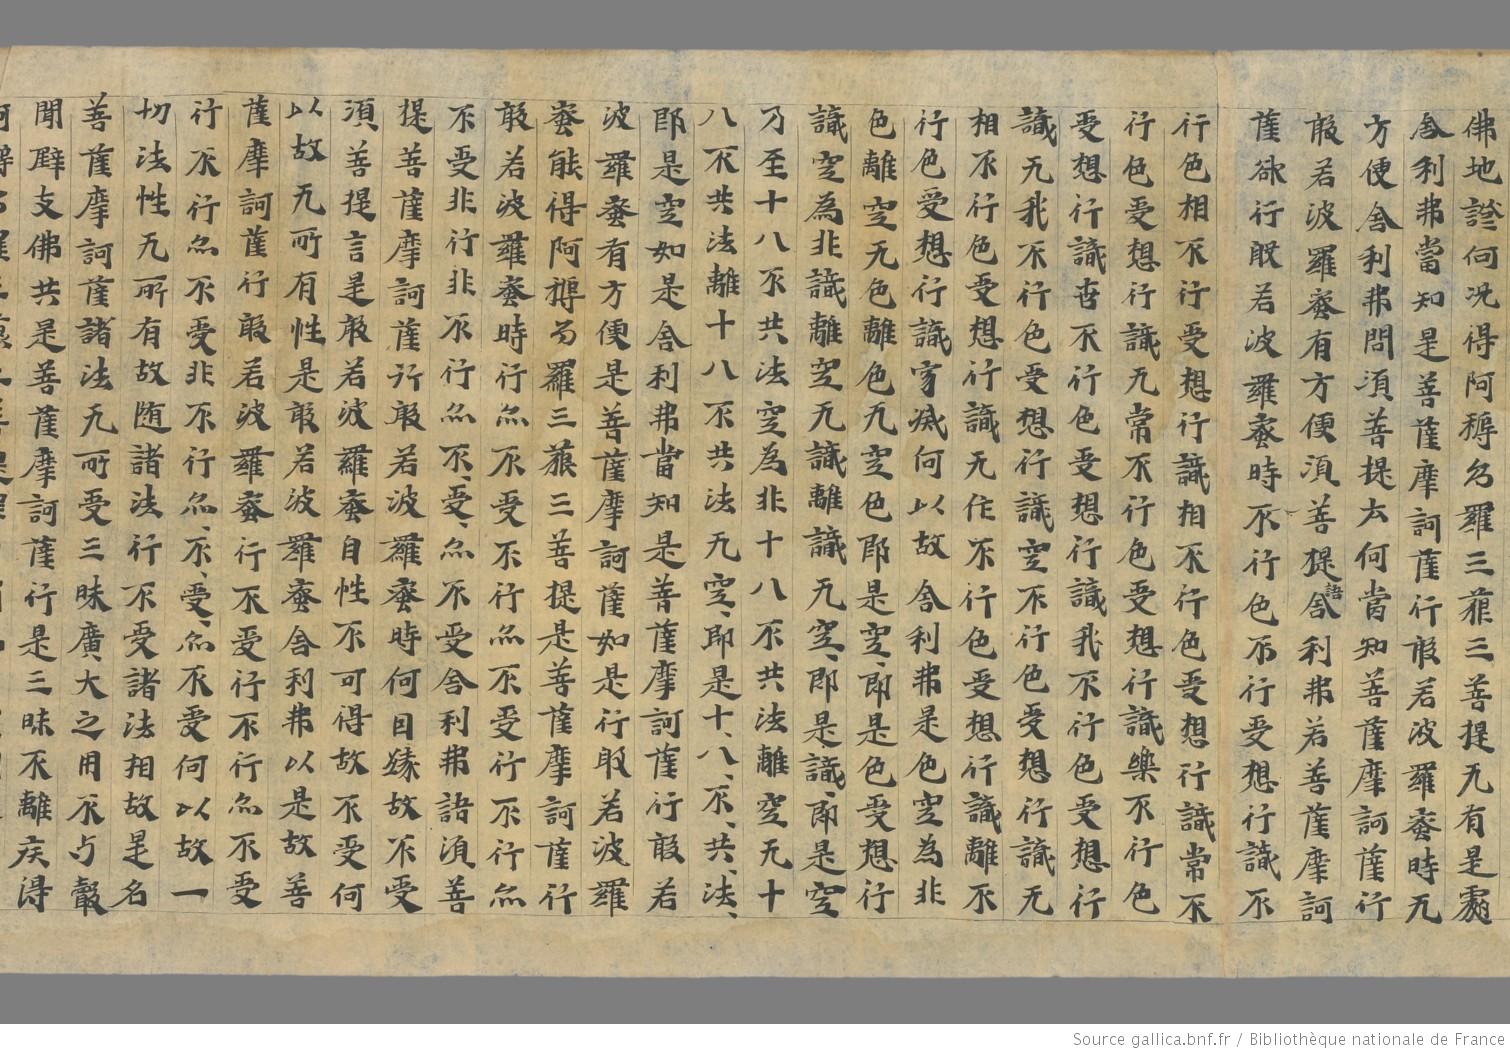 佛地證何況得阿耨多羅三藐三菩提无有是處
舍利弗當知是菩薩摩訶薩行般若波羅蜜時无
方便舍利弗問須菩提云何當知菩薩摩訶薩行
般若波羅蜜有方便須菩提語舍利弗若菩薩摩訶
薩欲行般若波羅蜜時不行色不行受想行識不
行色相不行受想行識相不行色受想行識常不
行色受想行識无常不行色受想行識樂不行色
受想行識苦不行色受想行識我不行色受想行
識无我不行色受想行識空不行色受想行識无
相不行色受想行識无作不行色受想行識離不
行色受想行識寂滅何以故舍利弗是色空為非
色離空无色離色无空色即是空空即是色受想行
識空為非識離空无識離識无空空即是識識即是空
乃至十八不共法空為非十八不共法離空无十
八不共法離十八不共法无空空即是十八不共法十八不共法
即是空如是舍利弗當知是菩薩摩訶薩行般若
波羅蜜有方便是菩薩摩訶薩如是行般若波羅
蜜能得阿耨多羅三藐三菩提是菩薩摩訶薩行
般若波羅蜜時行亦不受不行亦不受行不行亦
不受非行非不行亦不受不受亦不受舍利弗語須菩
提菩薩摩訶薩行般若波羅蜜時何因緣故不受
須菩提言是般若波羅蜜自性不可得故不受何
以故无所有性是般若波羅蜜舍利弗以是故菩
薩摩訶薩行般若波羅蜜行不受行不行亦不受
行不行亦不受非不行亦不受亦不受何以故一
切法性无所有故随諸法行不受諸法相故是名
菩薩摩訶薩諸法无所受三昧廣大之用不与聲
聞辟支佛共是菩薩摩訶薩行是三昧不離疾得
Source gallica.bnf.fr / Bibliothèque nationale de France